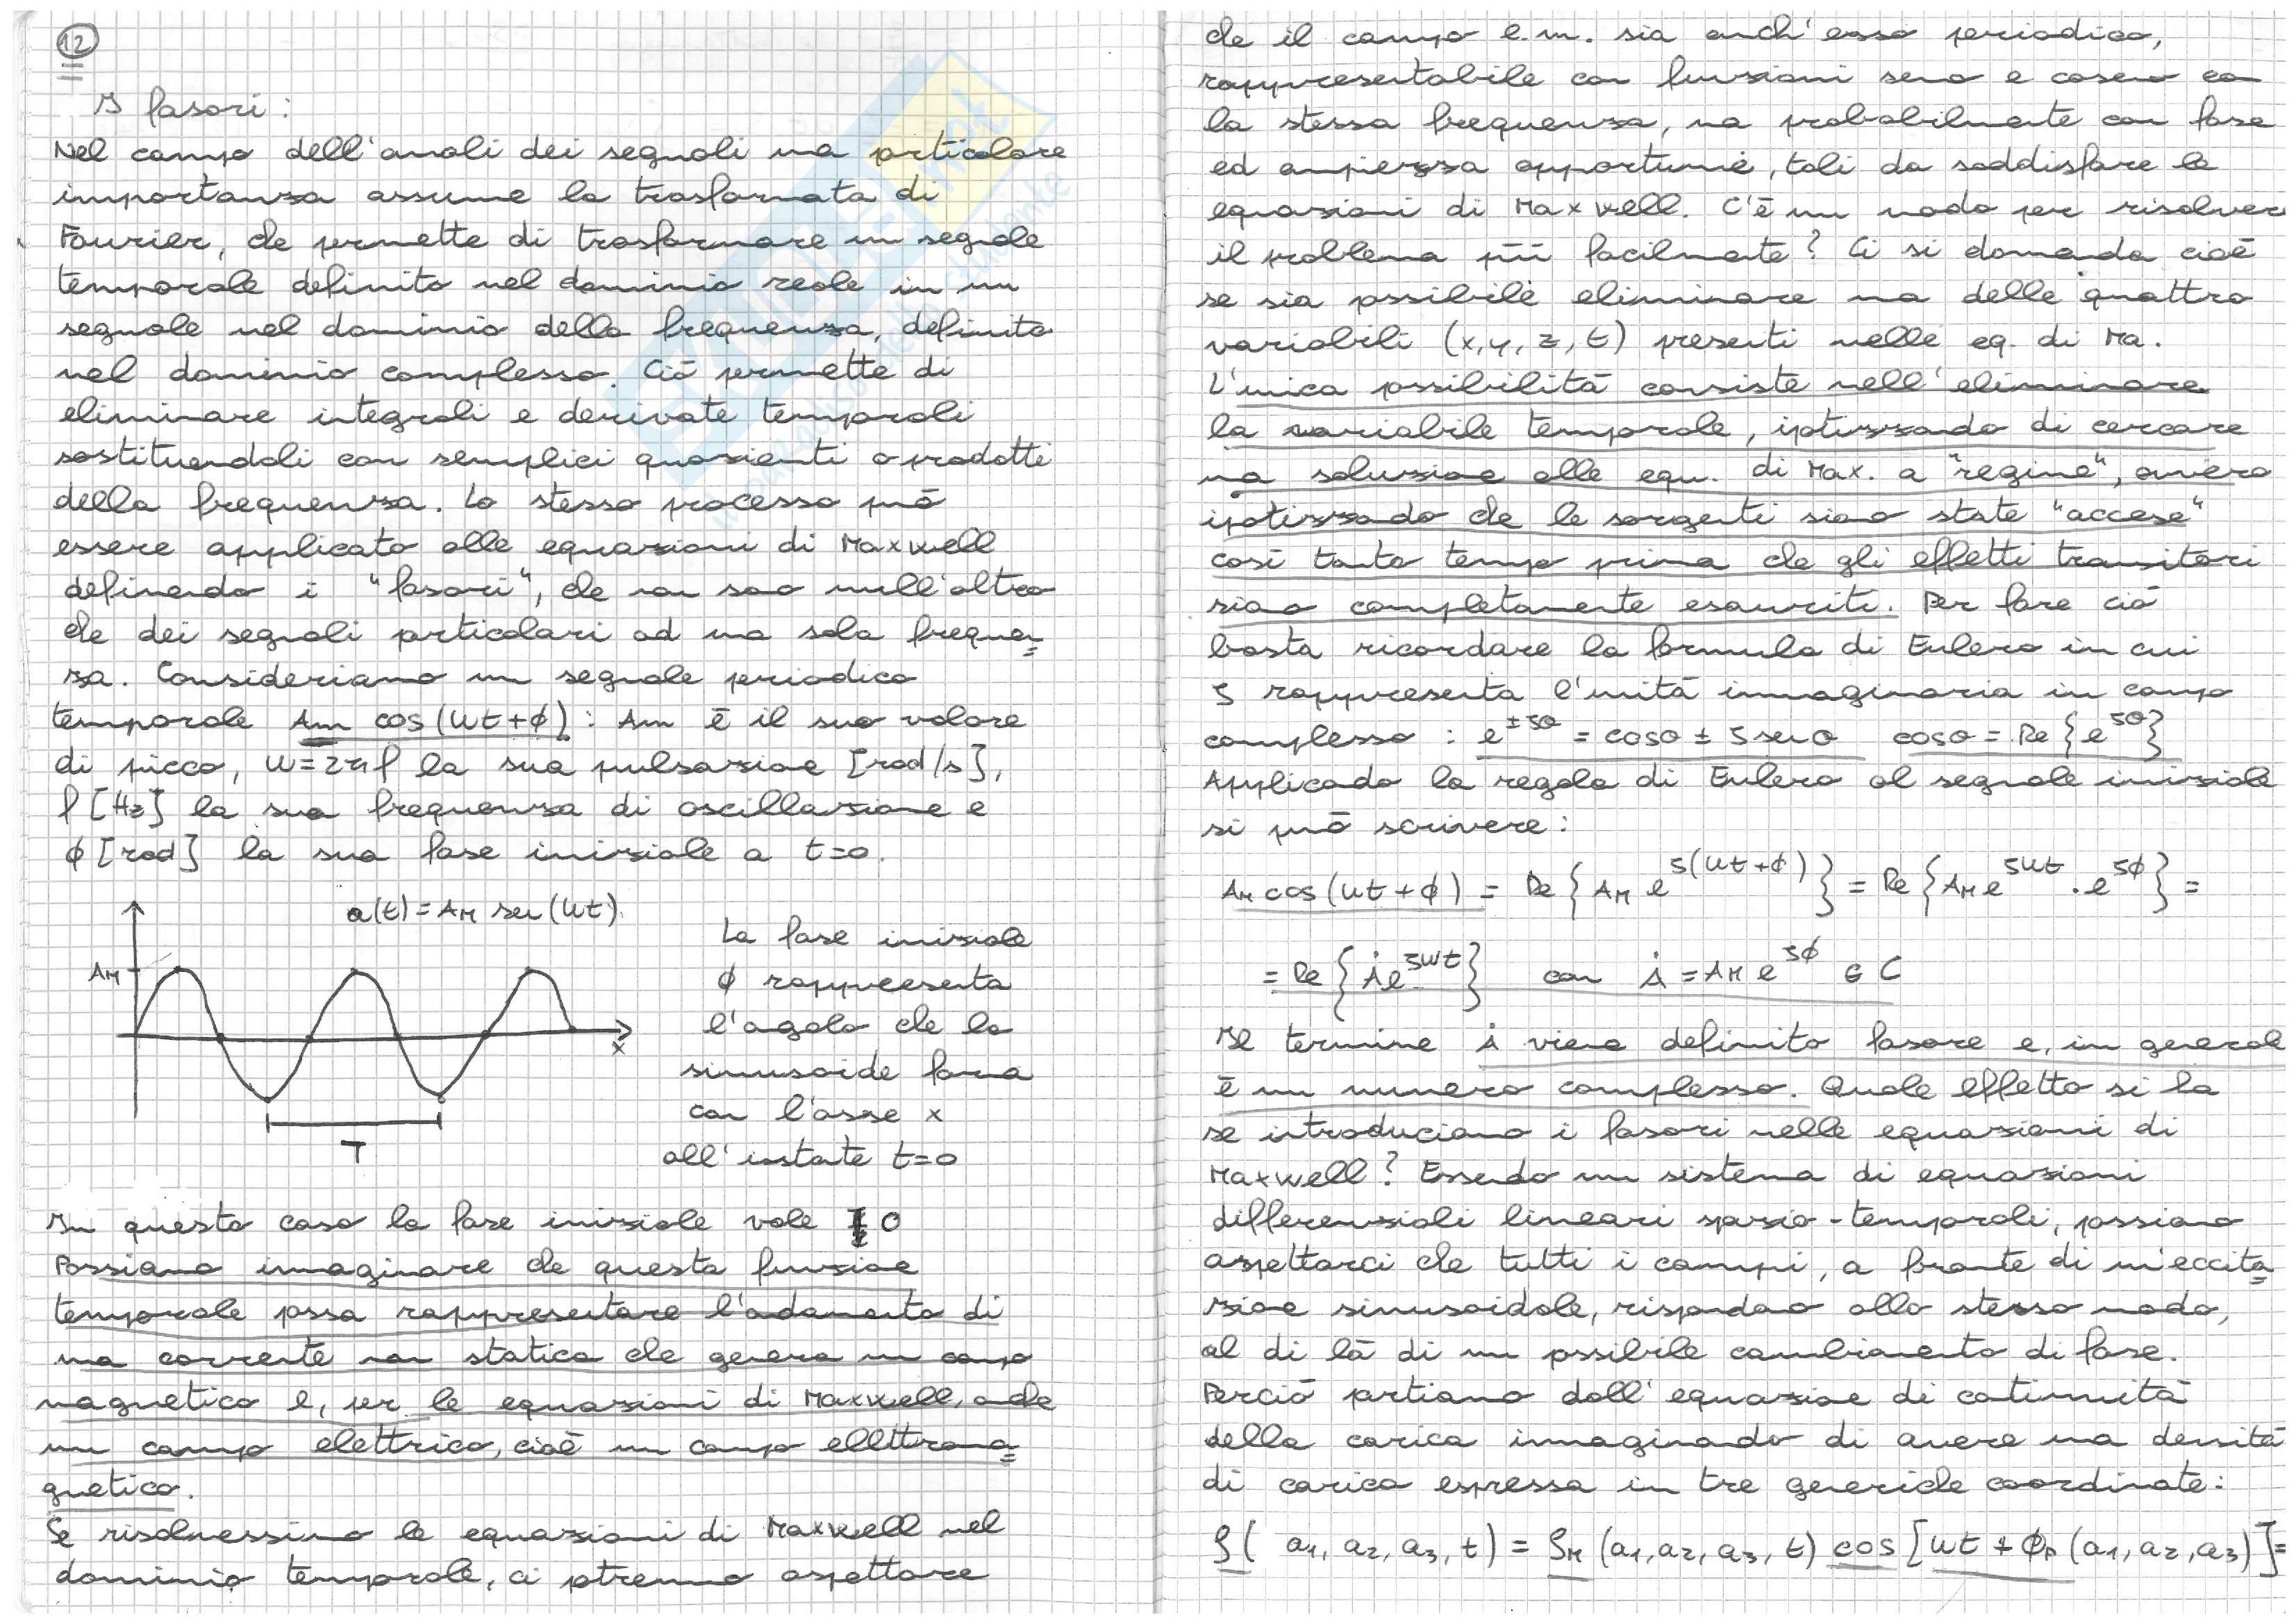 12
I fasori:
Nel campo dell'anali dei segnali una particolare
importanza assume la trasformata di
Fourier, che permette di trasformare un segnale
temporale definito nel dominio reale in un
segnale nel dominio della frequenza, definito
nel dominio complesso. Ciò permette di
eliminare integrali e derivate temporali
sostituendoli con semplici quozienti o prodotti
della frequenza. Lo stesso processo può
essere applicato alle equazioni di Maxwell
definendo i "fasori", che non sono null'altro
che dei segnali particolari ad una sola frequen=
za. Consideriamo un segnale periodico
temporale Am cos(ωt+ϕ): Am è il suo valore
di picco, ω=2πf la sua pulsazione [rad/s],
f [Hz] la sua frequenza di oscillazione e
ϕ [rad] la sua fase iniziale a t=0.
a(t) = AM sen(ωt)
AM
x
T
La fase iniziale
ϕ rappresenta
l'angolo che la
sinusoide forma
con l'asse x
all'instante t=0
In questo caso la fase iniziale vale 0
Possiamo immaginare che questa funzione
temporale possa rappresentare l'andamento di
una corrente non statica che genera un campo
magnetico e, per le equazioni di Maxwell, anche
un campo elettrico, cioè un campo ellttroma=
gnetico.
Se risolvessimo le equazioni di Maxwell nel
dominio temporale, ci potremmo aspettare
che il campo e.m. sia anch'esso periodico,
rappresentabile con funzioni seno e coseno con
la stessa frequenza, ma probabilmente con fase
ed ampiezza opportune, tali da soddisfare le
equazioni di Maxwell. C'è un modo per risolvere
il problema più facilmente? Ci si domanda cioè
se sia possibile eliminare una delle quattro
variabili (x,y,z,t) presenti nelle eq. di Ma.
L'unica possibilità consiste nell'eliminare
la variabile temporale, ipotizzando di cercare
una soluzione alle equ. di Max. a "regime", ovvero
ipotizzando che le sorgenti siano state "accese"
così tanto tempo prima che gli effetti transitori
siano completamente esauriti. Per fare ciò
basta ricordare la formula di Eulero in cui
J rappresenta l'unità immaginaria in campo
complesso: e^±Jθ = cosθ ± J senθ cosθ = Re{e^Jθ}
Applicando la regola di Eulero al segnale iniziale
si può scrivere:
AM cos(ωt+ϕ) = Re{AM e^J(ωt+ϕ)} = Re{AM e^Jωt · e^Jϕ} =
= Re{Ȧe^Jωt} con Ȧ = AM e^Jϕ ∈ C
Il termine Ȧ viene definito fasore e, in generale
è un numero complesso. Quale effetto si ha
se introduciamo i fasori nelle equazioni di
Maxwell? Essendo un sistema di equazioni
differenziali lineari spazio-temporali, possiamo
aspettarci che tutti i campi, a fronte di un'eccita=
zione sinusoidale, rispondano allo stesso modo,
al di là di un possibile cambiamento di fase.
Perciò partiamo dall'equazione di continuità
della carica immaginando di avere una densità
di carica espressa in tre generiche coordinate:
ρ(a1, a2, a3, t) = ρM (a1, a2, a3, t) cos[ωt + ϕρ (a1, a2, a3)] =